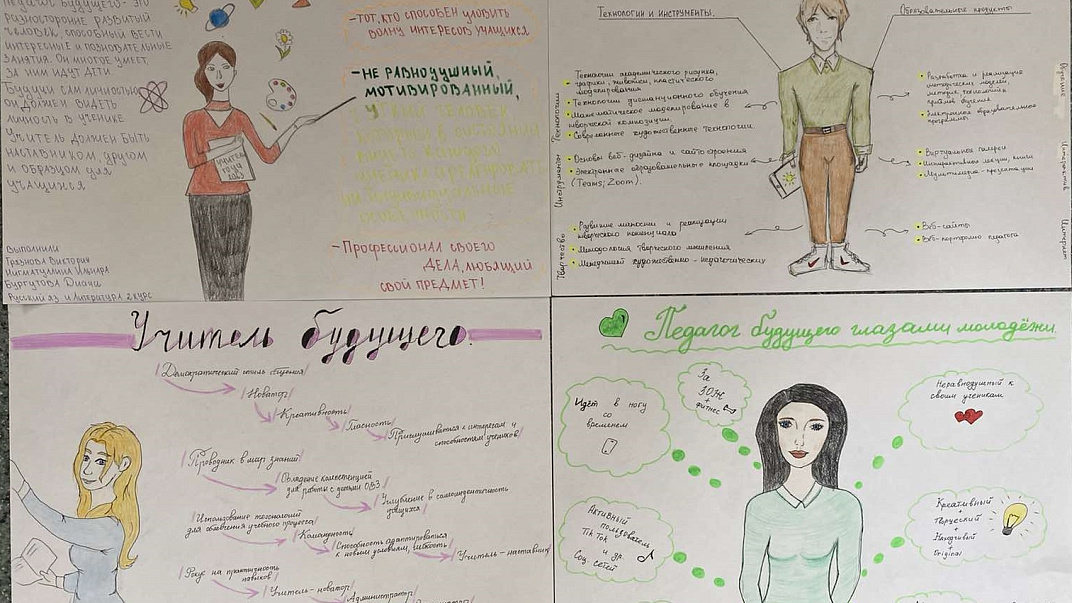 Педагог будущего - это
разносторонне развитый
человек, способный вести
интересные и познавательные
занятия. Он многое умеет,
за ним идут дети.
Будучи сам личностью
он должен видеть
личность в ученике
Учитель должен быть
наставником, другом
и образцом для
учащихся
Выполнили
Виктория
Нигматуллина Ильнара
Бургутова Диана
Русский яз и литература 2 курс
Учитель
года
-тот, кто способен уловить
волну интересов учащихся
-Не равнодушный,
мотивированный,
-Профессионал своего
дела, любящий
свой предмет!
Технологии и инструменты.
Образовательные продукты
Технологии
Технологии академического рисунка,
графики, живописи, пластического
моделирования
Технологии дистанционного обучения
Математическое моделирование в
творческой композиции.
Современные художественные технологии
Инструменты
Основы веб-дизайна и сайтостроения
Электронные образовательные площадки
(Teams; Zoom).
Творчество
Развитие личности и реализации
творческого потенциала
Методология творческого мышления
Менеджмент художественно-педагогических
Разработка и реализация
методических моделей,
методик, технологий и
приёмов обучения
Электронные образовательные
программы
Обучение
Виртуальные галереи
Интерактивные лекции, книги
Мультимедиа-презентации
Интерактив
Веб-сайты
Веб-портфолио педагога
Интернет
Учитель будущего.
Демократический стиль общения
Новатор
Креативность
Гласность
Прислушивается к интересам и
способностям учеников
Проводник в мир знаний
Обладание компетенцией
для работы с детьми ОВЗ
Углубление в самоидентичность
учащихся
Использование технологий
для облегчения учебного процесса
Командность
Способность адаптироваться
к новым условиям, гибкость
Учитель-наставник
Фокус на практичность
навыков
Учитель-новатор
Администратор
Педагог будущего глазами молодёжи.
Идёт в ногу
со
временем
За
ЗОЖ
+
фитнес
Неравнодушный к
своим ученикам
Активный
пользователь
Tik Tok
и др.
Соц. сетей
Креативный
+
Творческий
+
Находчивый
+
Original